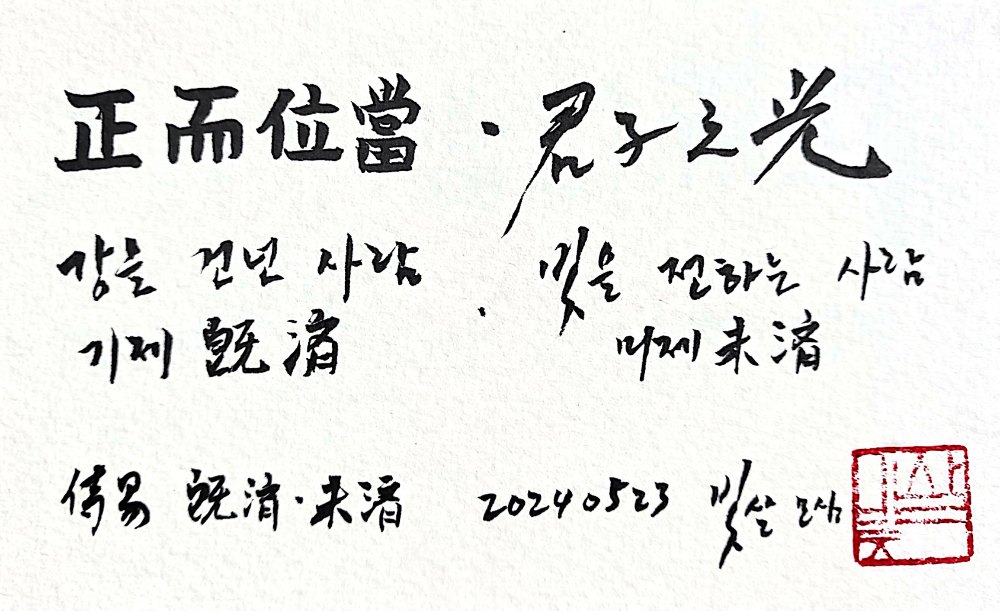 正而位當 · 君子之光
강을 건넌 사람 · 빛을 전하는 사람
기제 旣濟 미제 未濟
旣濟·未濟 20240523 빛살 모심
빛살